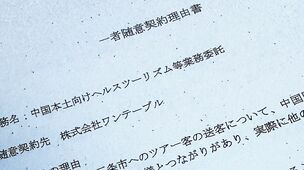 一者随意契約理由書
務名：中国本土向けヘルスツーリズム等業務委託
随意契約先　株式会社ワンテーブル
の理由
三条市へのツアー客の送客について、中国
とつながりがあり、実際に他の